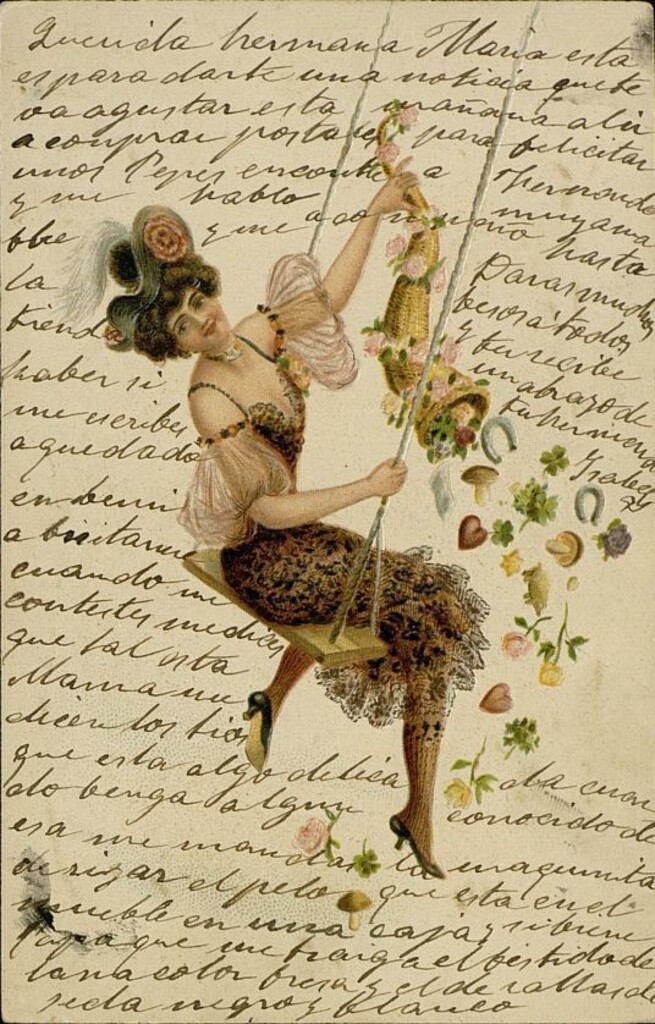 Querida hermana Maria esta
es para darte una noticia que te
va agustar esta mañana al ir
a comprar postales para felicitar
unos Pepes encontre a Hernande
y me hablo muy ama
ble y me acompaño hasta
la
tienda
haber si
me escribes
a quedado
en benir
a bisitarme
cuando me
contestes me dices
que tal esta
Mama me
dicen los tios
que esta algo delica
da cuan
do benga algun conocido de
esa me mandas la maquinita
de rizar el pelo que esta en el
mueble en una caja y si biene
Papa que me traiga el bestido de
lana color fresa y el de rallas de
seda negro y blanco
Daras muchos
besos a todos
y tu recibe
un abrazo de
tu hermana
Isabel